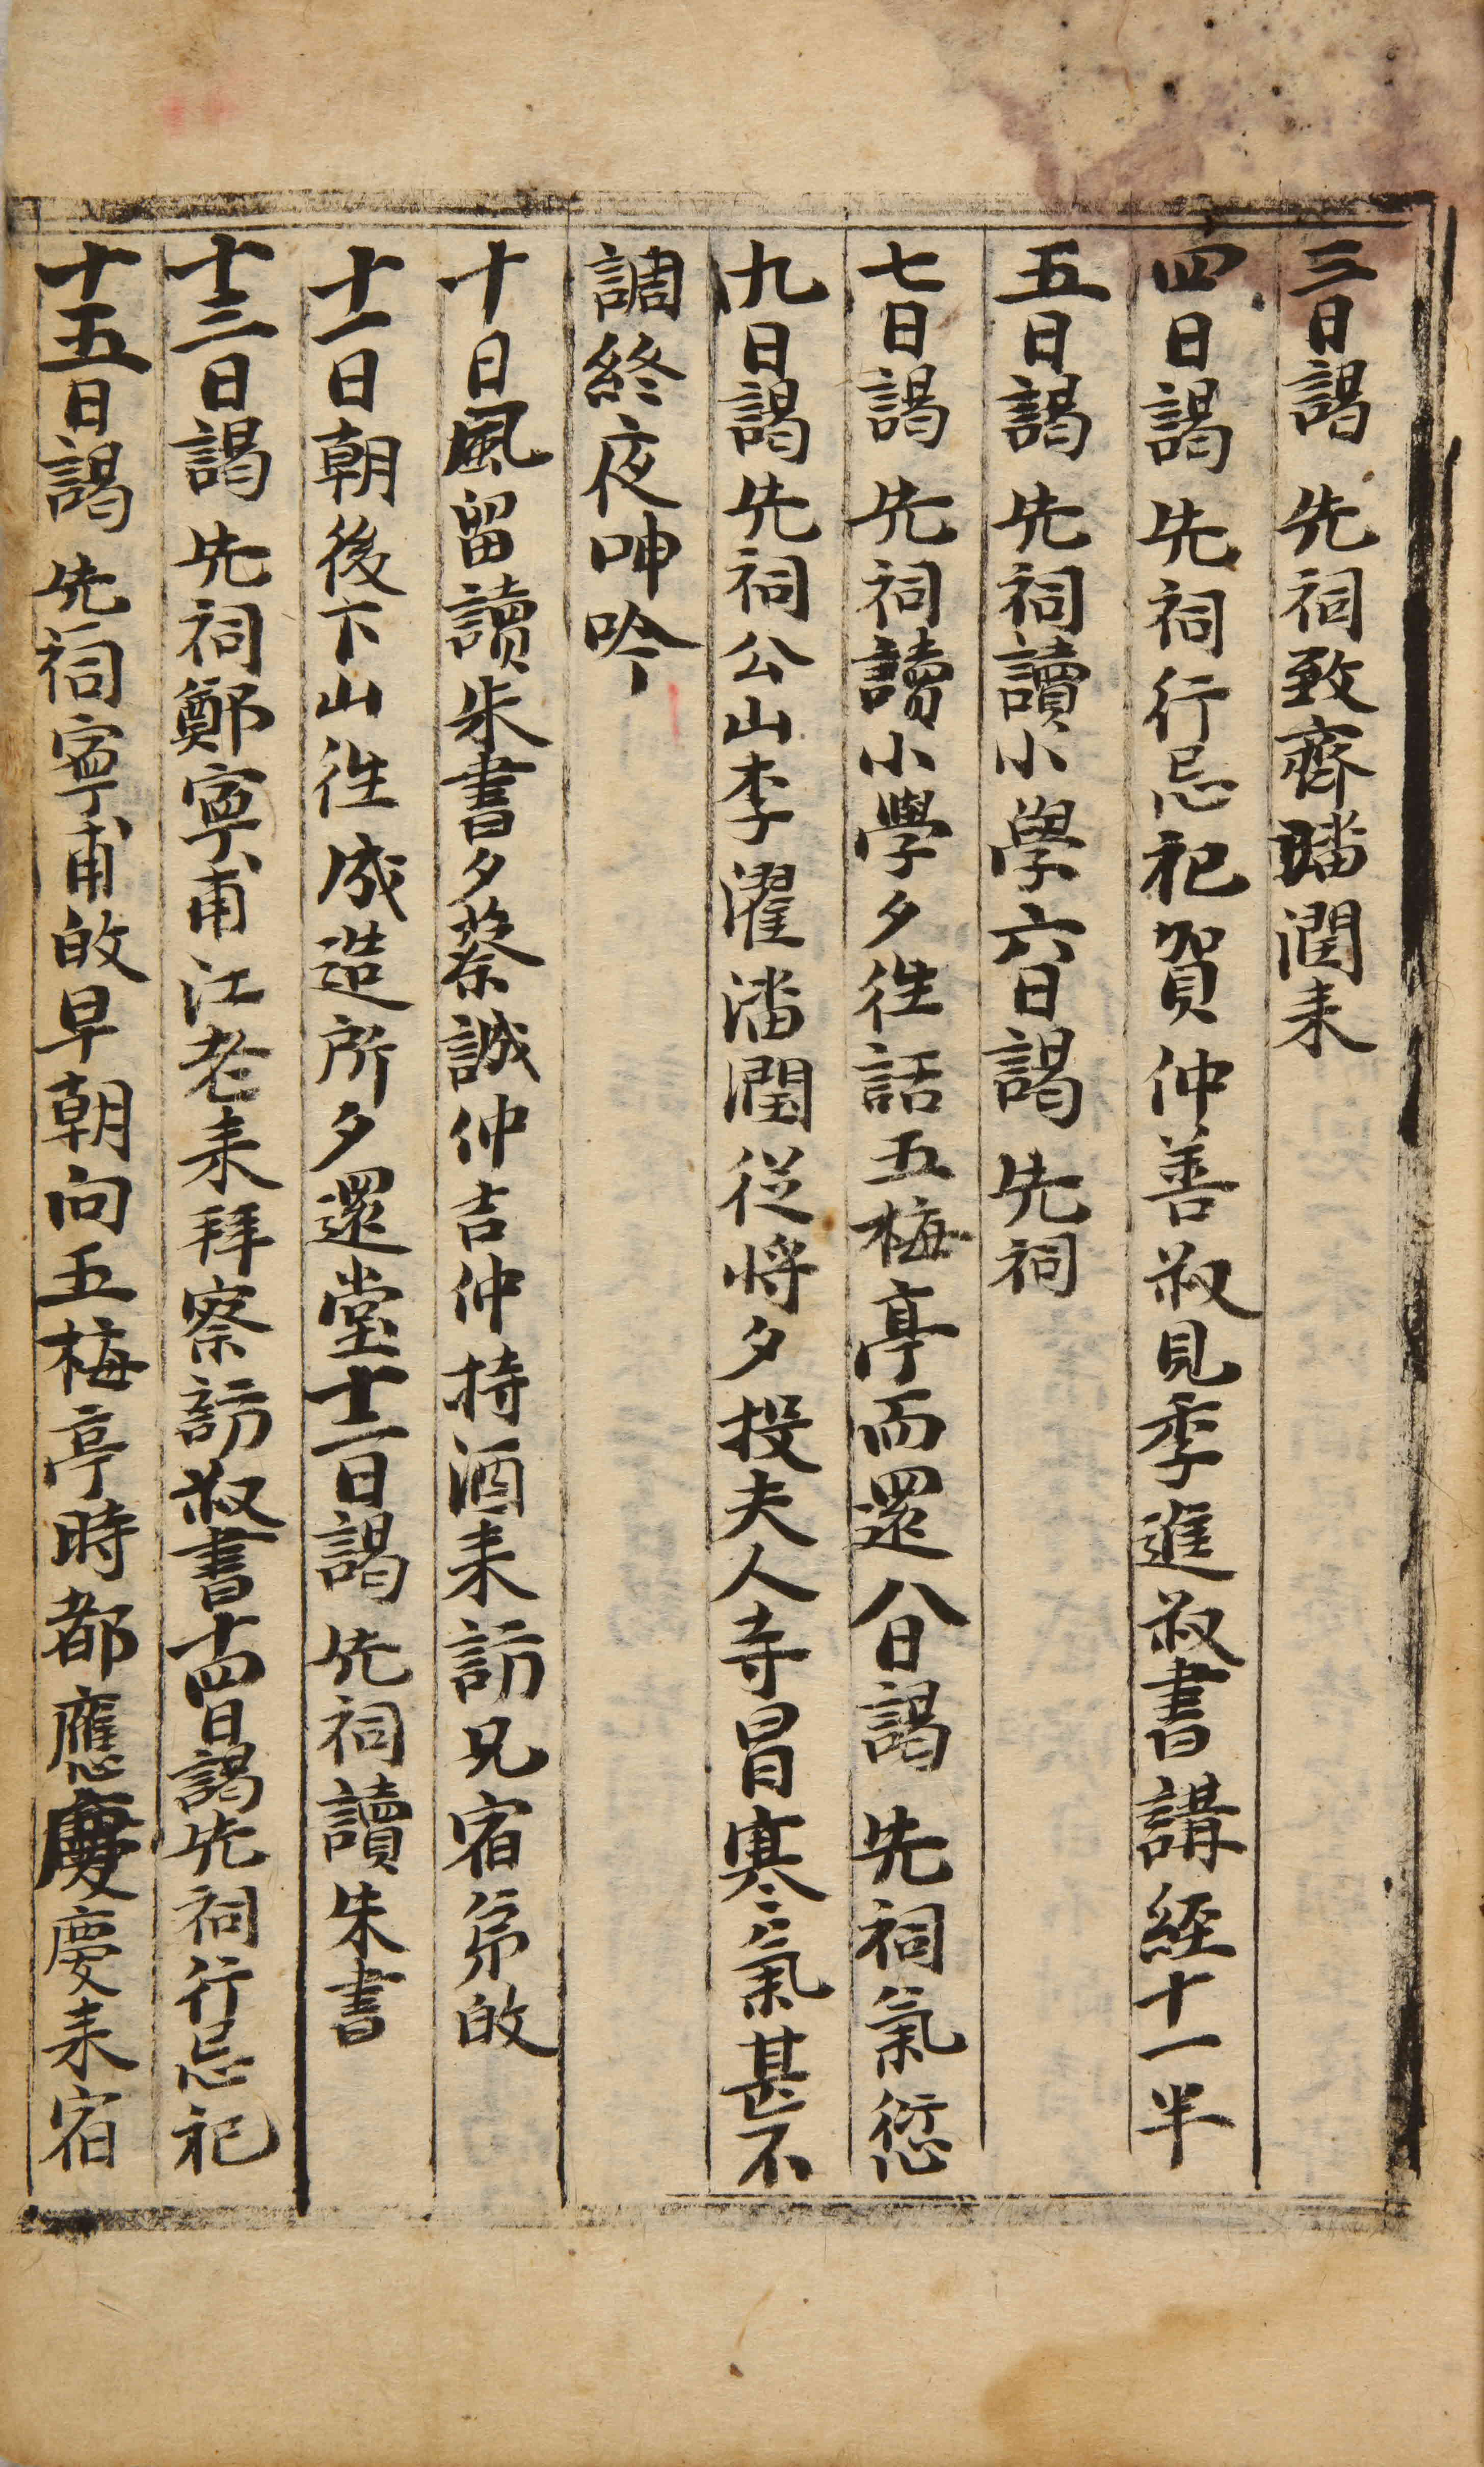 三日謁 先祠致齊璠潤来
四日謁 先祠行忌祀賀仲善叔見季進叔書講經十一半
五日謁 先祠讀小學六日謁 先祠
七日謁 先祠讀小學夕徃話五梅亭而還八日謁 先祠氣愆
九日謁 先祠公山李濯潘潤從將夕投夫人寺冒寒氣甚不
調終夜呻吟
十日風留讀朱書夕蔡誠仲吉仲持酒来訪兄宿弟攽
十一日朝後下山徃成造所夕還堂十二日謁 先祠讀朱書
十三日謁 先祠鄭寧甫江老来拜察訪叔書十四日謁先祠行忌祀
十五日謁 先祠寧甫攽早朝向五梅亭時都應慶慶来宿